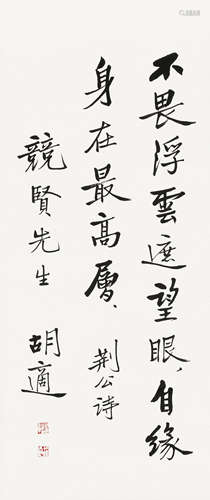 不畏浮雲遮望眼，自缘
身在最高層、
荆公诗
競賢先生
胡適